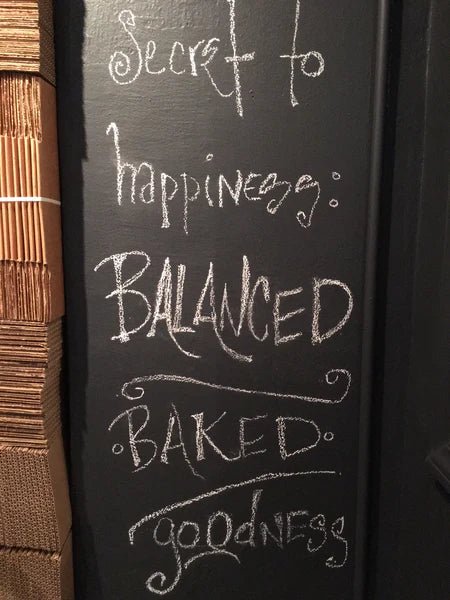 Secret to
happiness:
BALANCED
BAKED
goodness